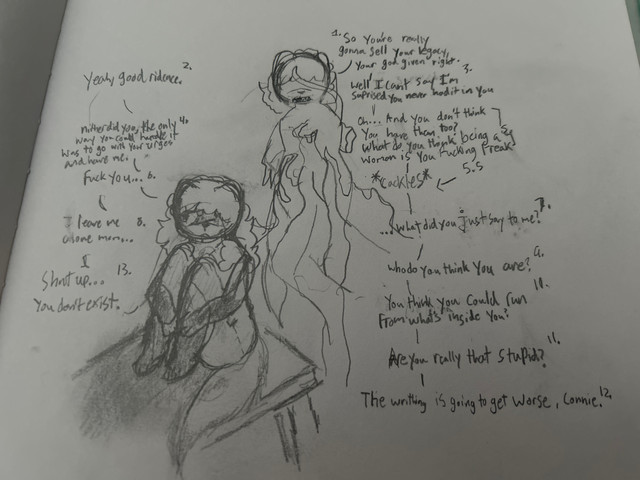 1. So you're really
gonna sell your legacy,
your god given right.
2.
Yeahy good ridence.
3.
Well I cant say I'm
suprised you never had it in you
4.
nither did you, the only
way you could handle it
was to go with your urges
and have me.
5.
Oh... And you don't think
you have them too?
What do you think being a
woman is you fucking freak
*cackles* 5.5
Fuck you... 6.
7.
...what did you just say to me?
I leave me 8.
alone mom...
9.
who do you think you are?
10.
You think you could run
from what's inside you?
11.
Are you really that stupid?
The writhing is going to get worse, Connie. 12.
Shut up... 13.
You don't exist.